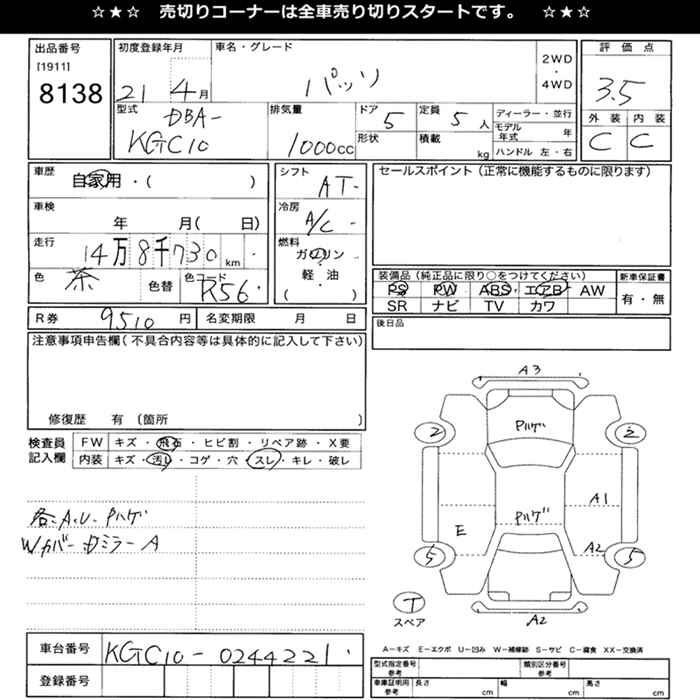 ☆★☆ 売切りコーナーは全車売り切りスタートです。 ☆★☆
出品番号 初度登録年月 車名・グレード 2WD・4WD 評価点
[1911]
8138 21年4月 パッソ 3.5
型式 DBA-KGC10 排気量 1000cc ドア 5 定員 5人 ディーラー・並行 外装 内装
形状 積載 kg モデル年式 年 C C
ハンドル 左・右
車歴 自家用・( ) シフト AT- セールスポイント(正常に機能するものに限ります)
車検 年 月( 日) 冷房 A/C-
走行 14万8千730km 燃料 ガソリン・軽・油 ( )
色 茶 色替 色コード R56
装備品(純正品に限り○をつけてください) 新車保証書
PS PW ABS エアB AW 有・無
SR ナビ TV カワ
R券 9,510円 名変期限 月 日 後日品
注意事項申告欄(不具合内容等は具体的に記入して下さい)
修復歴 有 (箇所 )
検査員記入欄 FW キズ・飛石・ヒビ割・リペア跡・X要
内装 キズ・汚れ・コゲ・穴・スレ・キレ・破レ
各所A.U.Pハゲ
Wカバー・ドミラーA
A3
Pハゲ
2 2
A1
Pハゲ
E
A2
5 5
T
スペア
A2
A−キズ E−エクボ U−凹み W−補修跡 S−サビ C−腐食 XX−交換済
車台番号 KGC10-0244221
登録番号
型式指定番号 参考 類別区分番号 参考
車庫証明用 参考 長さ cm 幅 cm 高さ cm